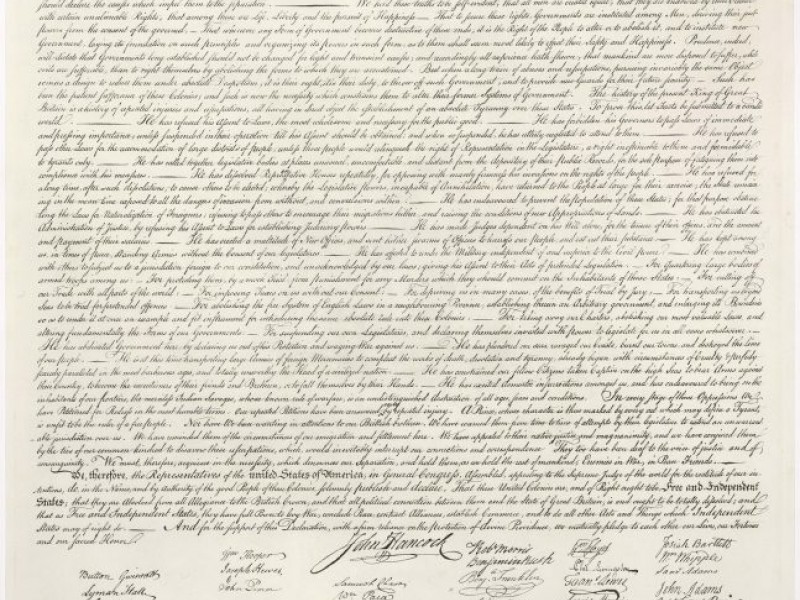 should declare the causes which impel them to the separation. — We hold these truths to be self-evident, that all men are created equal, that they are endowed by their Creator
with certain unalienable Rights, that among these are Life, Liberty and the pursuit of Happiness. — That to secure these rights, Governments are instituted among Men, deriving their just
powers from the consent of the governed, — That whenever any Form of Government becomes destructive of these ends, it is the Right of the People to alter or to abolish it, and to institute new
Government, laying its foundation on such principles and organizing its powers in such form, as to them shall seem most likely to effect their Safety and Happiness. Prudence, indeed,
will dictate that Governments long established should not be changed for light and transient causes; and accordingly all experience hath shewn, that mankind are more disposed to suffer, while
evils are sufferable, than to right themselves by abolishing the forms to which they are accustomed. But when a long train of abuses and usurpations, pursuing invariably the same Object
evinces a design to reduce them under absolute Despotism, it is their right, it is their duty, to throw off such Government, and to provide new Guards for their future security. — Such has
been the patient sufferance of these Colonies; and such is now the necessity which constrains them to alter their former Systems of Government. The history of the present King of Great
Britain is a history of repeated injuries and usurpations, all having in direct object the establishment of an absolute Tyranny over these States. To prove this, let Facts be submitted to a candid
world. — He has refused his Assent to Laws, the most wholesome and necessary for the public good. — He has forbidden his Governors to pass Laws of immediate
and pressing importance, unless suspended in their operation till his Assent should be obtained; and when so suspended, he has utterly neglected to attend to them. — He has refused to
pass other Laws for the accommodation of large districts of people, unless those people would relinquish the right of Representation in the Legislature, a right inestimable to them and formidable
to tyrants only. — He has called together legislative bodies at places unusual, uncomfortable, and distant from the depository of their public Records, for the sole purpose of fatiguing them into
compliance with his measures. — He has dissolved Representative Houses repeatedly, for opposing with manly firmness his invasions on the rights of the people. — He has refused for
a long time, after such dissolutions, to cause others to be elected; whereby the Legislative powers, incapable of Annihilation, have returned to the People at large for their exercise; the State remain
ing in the mean time exposed to all the dangers of invasion from without, and convulsions within. — He has endeavoured to prevent the population of these States; for that purpose obstruc
ting the Laws for Naturalization of Foreigners; refusing to pass others to encourage their migrations hither, and raising the conditions of new Appropriations of Lands. — He has obstructed the
Administration of Justice, by refusing his Assent to Laws for establishing Judiciary powers. — He has made Judges dependent on his Will alone, for the tenure of their offices, and the amount
and payment of their salaries. — He has erected a multitude of New Offices, and sent hither swarms of Officers to harrass our people, and eat out their substance. — He has kept among
us, in times of peace, Standing Armies without the Consent of our legislatures. — He has affected to render the Military independent of and superior to the Civil power. — He has combined
with others to subject us to a jurisdiction foreign to our constitution, and unacknowledged by our laws; giving his Assent to their Acts of pretended Legislation: — For quartering large bodies of
armed troops among us: — For protecting them, by a mock Trial, from punishment for any Murders which they should commit on the Inhabitants of these States: — For cutting off
our Trade with all parts of the world: — For imposing Taxes on us without our Consent: — For depriving us in many cases, of the benefits of Trial by Jury: — For transporting us beyond
Seas to be tried for pretended offences — For abolishing the free System of English Laws in a neighbouring Province, establishing therein an Arbitrary government, and enlarging its Boundaries
so as to render it at once an example and fit instrument for introducing the same absolute rule into these Colonies: — For taking away our Charters, abolishing our most valuable Laws, and
altering fundamentally the Forms of our Governments: — For suspending our own Legislatures, and declaring themselves invested with power to legislate for us in all cases whatsoever. —
He has abdicated Government here, by declaring us out of his Protection and waging War against us. — He has plundered our seas, ravaged our Coasts, burnt our towns, and destroyed the lives
of our people. — He is at this time transporting large Armies of foreign Mercenaries to compleat the works of death, desolation and tyranny, already begun with circumstances of Cruelty & perfidy
scarcely paralleled in the most barbarous ages, and totally unworthy the Head of a civilized nation. — He has constrained our fellow Citizens taken Captive on the high Seas to bear Arms against
their Country, to become the executioners of their friends and Brethren, or to fall themselves by their Hands. — He has excited domestic insurrections amongst us, and has endeavoured to bring on the
inhabitants of our frontiers, the merciless Indian Savages, whose known rule of warfare, is an undistinguished destruction of all ages, sexes and conditions. In every stage of these Oppressions We
have Petitioned for Redress in the most humble terms: Our repeated Petitions have been answered only by repeated injury. A Prince, whose character is thus marked by every act which may define a Tyrant,
is unfit to be the ruler of a free people. Nor have We been wanting in attentions to our Brittish brethren. We have warned them from time to time of attempts by their legislature to extend an unwarrant
able jurisdiction over us. We have reminded them of the circumstances of our emigration and settlement here. We have appealed to their native justice and magnanimity, and we have conjured them
by the ties of our common kindred to disavow these usurpations, which, would inevitably interrupt our connections and correspondence. They too have been deaf to the voice of justice and of
consanguinity. We must, therefore, acquiesce in the necessity, which denounces our Separation, and hold them, as we hold the rest of mankind, Enemies in War, in Peace Friends. —
We, therefore, the Representatives of the united States of America, in General Congress, Assembled, appealing to the Supreme Judge of the world for the rectitude of our in
tentions, do, in the Name, and by Authority of the good People of these Colonies, solemnly publish and declare, That these United Colonies are, and of Right ought to be Free and Independent
States; that they are Absolved from all Allegiance to the British Crown, and that all political connection between them and the State of Great Britain, is and ought to be totally dissolved; and
that as Free and Independent States, they have full Power to levy War, conclude Peace, contract Alliances, establish Commerce, and to do all other Acts and Things which Independent
States may of right do. — And for the support of this Declaration, with a firm reliance on the protection of divine Providence, we mutually pledge to each other our Lives, our Fortunes
and our sacred Honor.
John Hancock
Button Gwinnett
Lyman Hall
Wm Hooper
Joseph Hewes
John Penn
Samuel Chase
Wm Paca
Robt Morris
Benjamin Rush
Benj. Franklin
Wm Floyd
Phil. Livingston
Frans Lewis
Josiah Bartlett
Wm Whipple
Saml Adams
John Adams